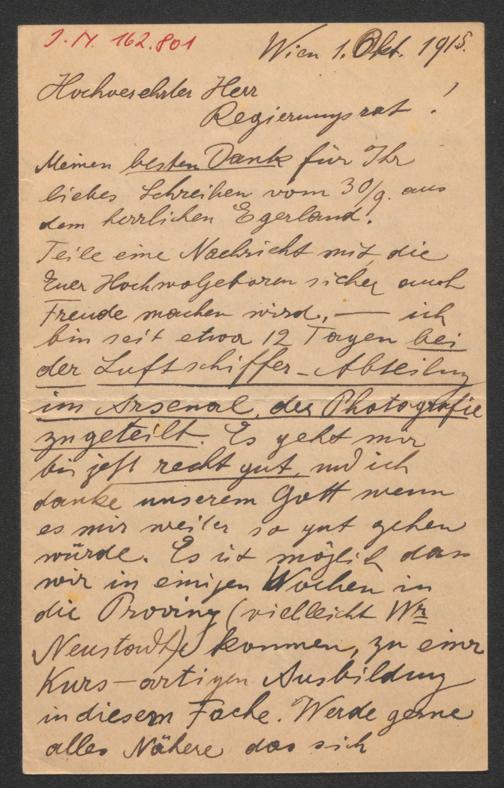 J. N. 162.801
Wien 1. Okt. 1915.
Hochverehrter Herr
Regierungsrat!
Meinen besten Dank für Ihr
liebes Schreiben vom 30/9. aus
dem herrlichen Egerland.
Teile eine Nachricht mit, die
Euer Hochwolgeboren sicher auch
Freude machen wird, — ich
bin seit etwa 12 Tagen bei
der Luftschiffer-Abteilung
im Arsenal, der Photografie
zugeteilt. Es geht mir
bis jetzt recht gut, und ich
danke unserem Gott wenn
es mir weiter so gut gehen
würde. Es ist möglich dass
wir in einigen Wochen in
die Provinz (vielleicht Wr
Neustadt) kommen, zu einer
Kurs-artigen Ausbildung
in diesem Fache. Werde gerne
alles Nähere das sich